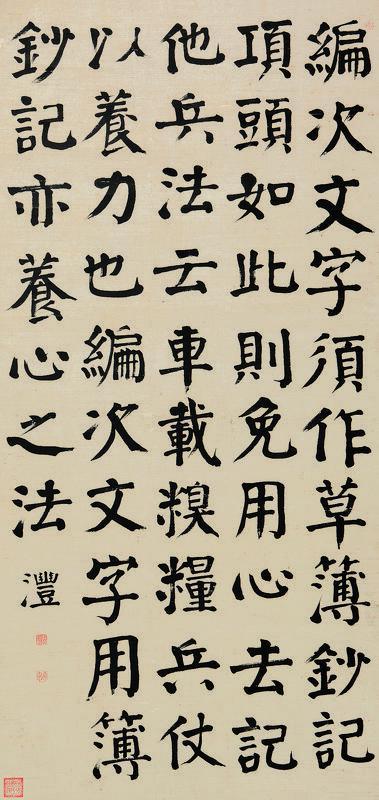 編次文字須作草薄鈔記
項頭如此則免用心去記
他兵法云車載糗糧兵仗
以養力也編次文字用簿
鈔記亦養心之法
灃